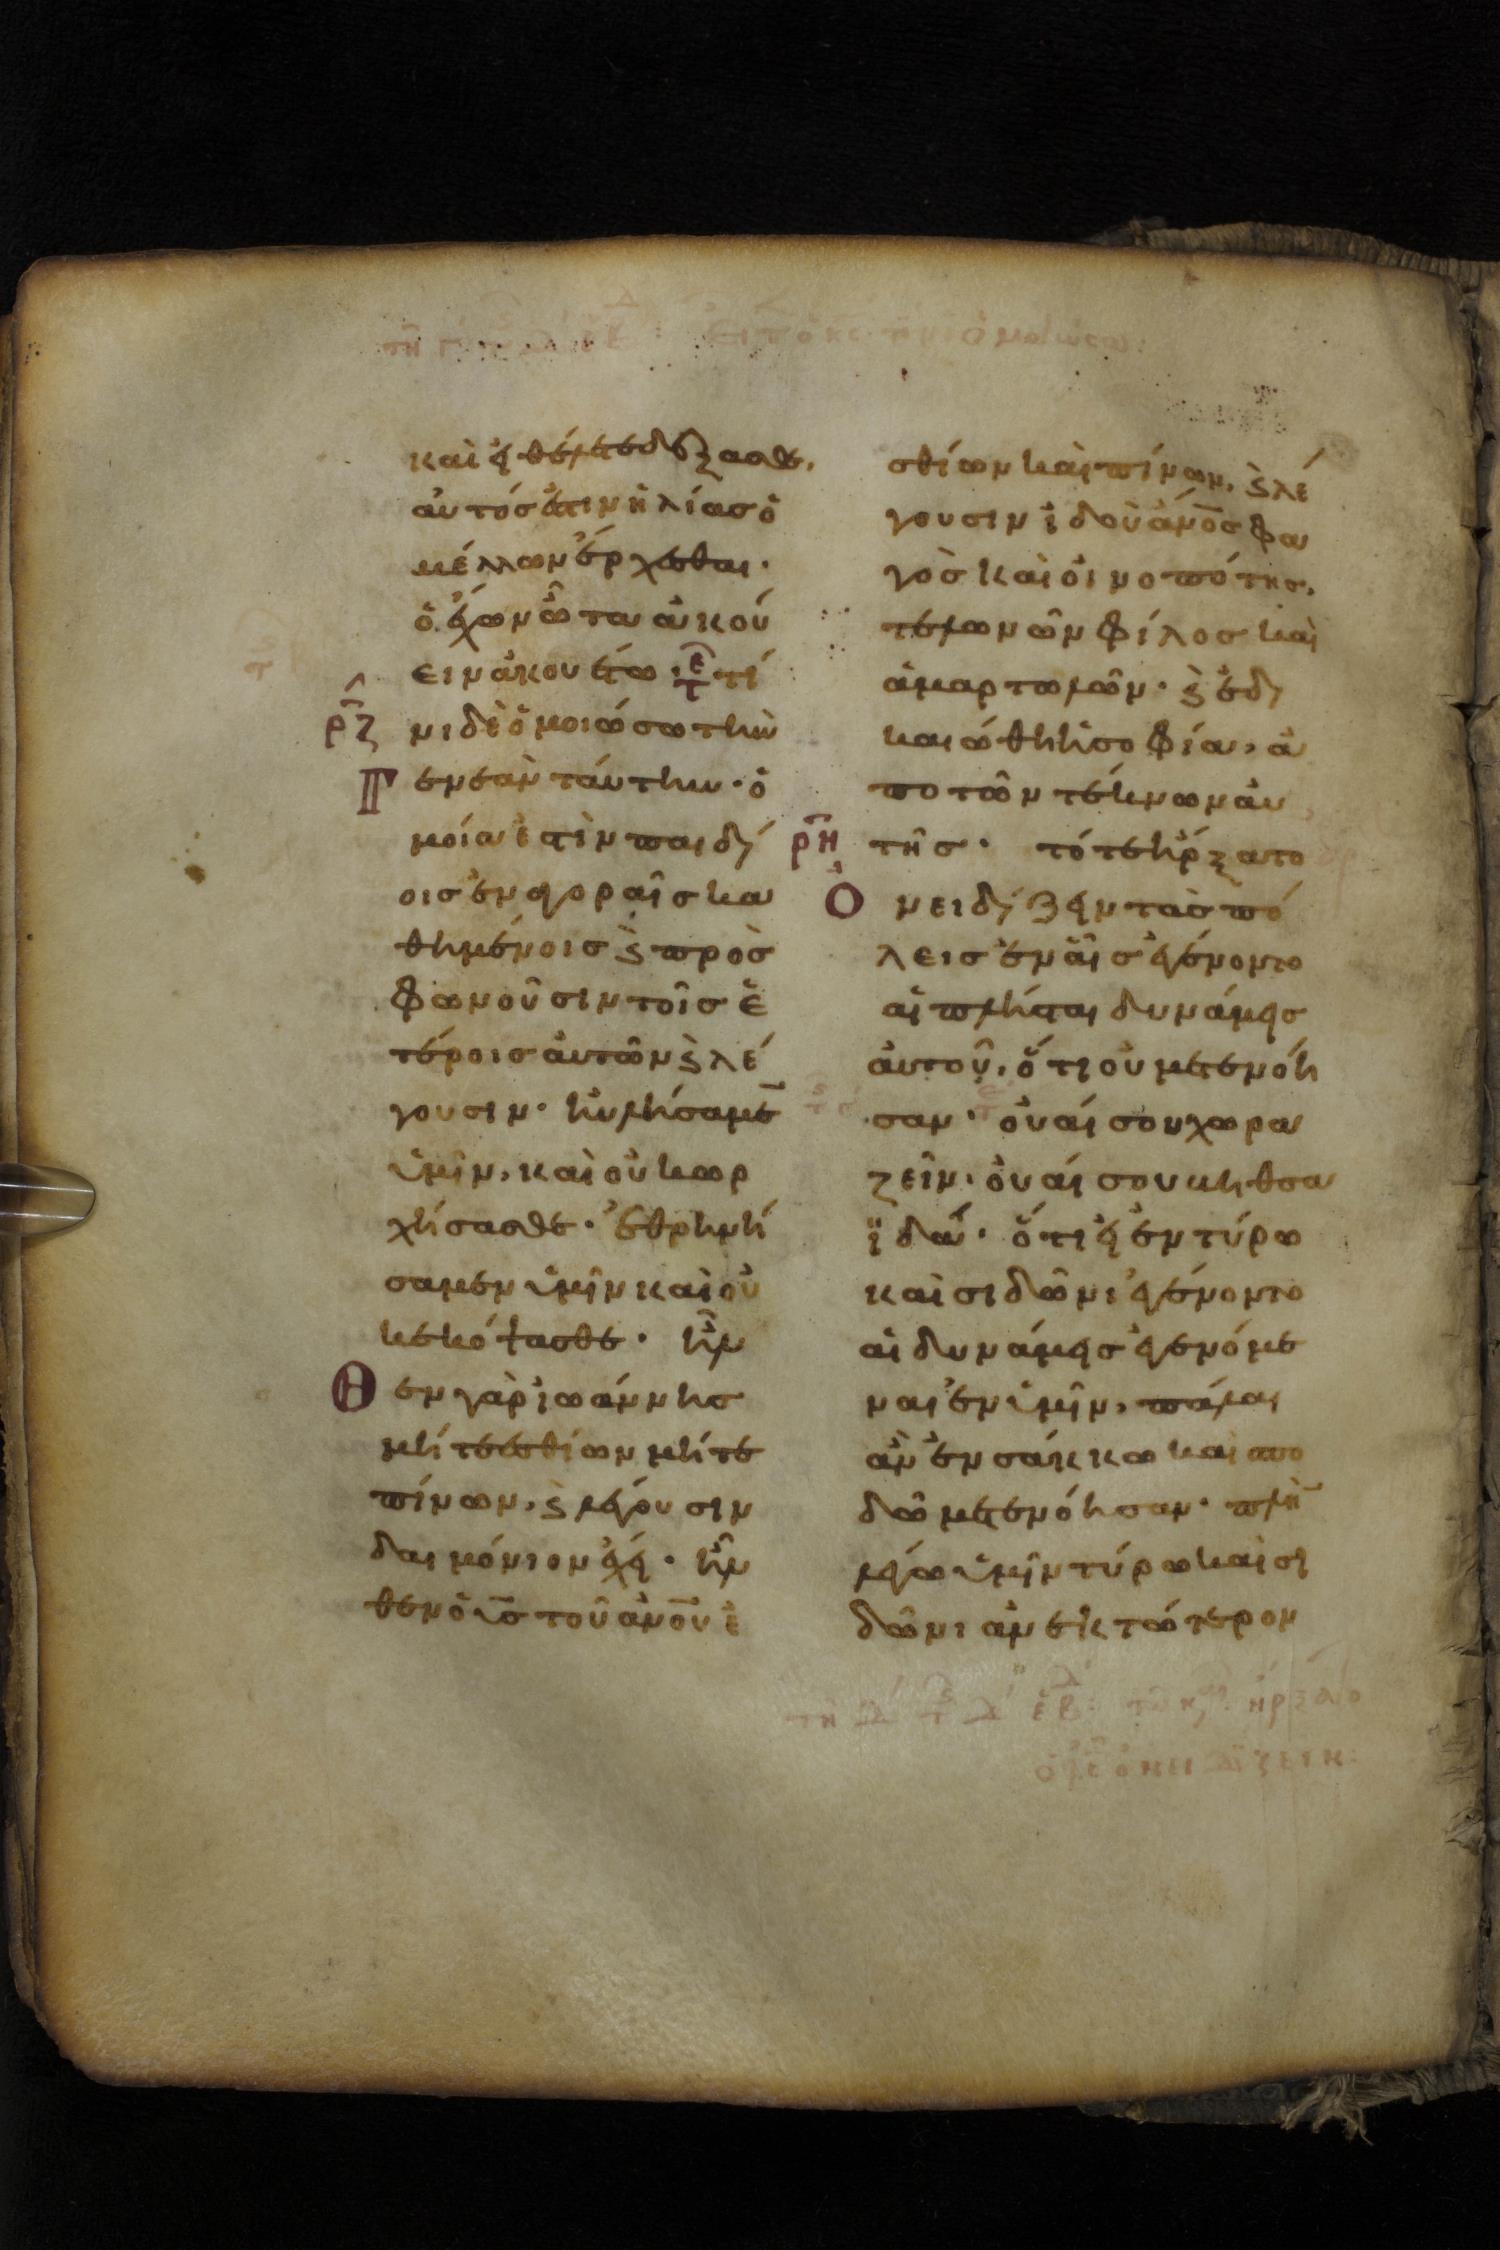 καὶ εἰ θέλετε δέξασθε,
αὐτός ἐστιν ἠλίας ὁ
μέλλων ἔρχεσθαι·
ὁ ἔχων ὦτα ἀκού
ειν ἀκουέτω· τί
ρζ
νι δὲ ὁμοιώσω τὴν
Γ ενεὰν ταύτην· ὁ
μοία ἐστὶν παιδί
οις ἐν ἀγοραῖς κα
θημένοις ϗ προσ
φωνοῦσιν τοῖς ἑ
τέροις αὐτῶν ϗ λέ
γουσιν· ηὐλήσαμε̅
ὑμῖν, καὶ οὐκ ὠρ
χήσασθε· ἐθρηνή
σαμεν ὑμῖν καὶ οὐ
κ ἐκόψασθε· ἦλ
Θ εν γὰρ ἰωάννης
μήτε ἐσθίων μήτε
πίνων, ϗ λέγουσιν
δαιμόνιον ἔχει· ἦλ
θεν ὁ υ̅ς̅ τοῦ α̅ν̅ο̅υ̅ ἐ
σθίων καὶ πίνων, ϗ λέ
γουσιν ἰδοὺ α̅ν̅ο̅ς̅ φα
γὸς καὶ οἰνοπότης,
τελωνῶν φίλος καὶ
ἁμαρτωλῶν· ϗ ἐδι
καιώθη ἡ σοφία, ἀ
πὸ τῶν τέκνων αὐ
ρη τῆς· τότε ἤρξατο
Ο νειδίζειν τὰς πό
λεις ἐν αἷς ἐγένοντο
αἱ πλεῖσται δυνάμεις
αὐτοῦ, ὅτι οὐ μετενόη
σαν· οὐαί σου χωρα
ζεῖν· οὐαί σου βηθσα
ϊδά· ὅτι εἰ ἐν τύρω
καὶ σιδῶνι ἐγένοντο
αἱ δυνάμεις αἱ γενόμε
ναι ἐν ὑμῖν, πάλαι
ἂν ἐν σάκκω καὶ σπο
δῶ μετενόησαν· πλὴ̅
λέγω ὑμῖν τύρω καὶ σι
δῶνι ἀνεκτότερον